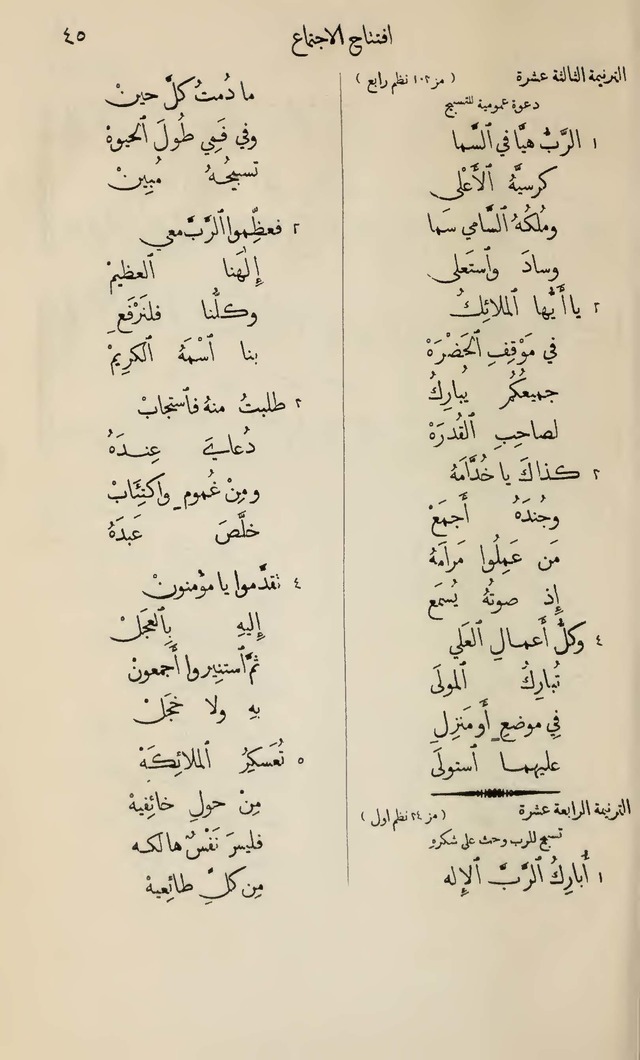 افتتاح الاجتماع
٤٥
الترنيمة الثالثة عشرة ( مز ١٠٢ نظم رابع )
دعوة عمومية للتسبيح
١ الرَّبُّ هيَّا في ٱلسَّما
كرسيَّهُ ٱلأَعْلَى
ومُلكُهُ ٱلسَّامي سَما
وسادَ وٱستَعلى
٢ يا أَيُّها ٱلملائِكُ
في مَوْقِفِ ٱلحَضْرَهْ
جميعُكُمُ يُبارِكُ
لصاحِبِ ٱلقُدرَهْ
٢ كذاكَ يا خُدَّامَهُ
وجُندَهُ أَجمَعْ
مَن عَمِلُوا مَرامَهُ
إِذ صوتُهُ يُسمَع
٤ وكلُّ أَعمالِ ٱلعَلي
تُبارِكُ ٱلمولَى
في موضعٍ أَو مَنزِلِ
عليهما ٱستولَى
الترنيمة الرابعة عشرة ( مز ٢٤ نظم اول )
تسبيح للرب وحث على شكره
١ أُبارِكُ ٱلرَّبَّ ٱلإِله
ما دُمتُ كلَّ حينْ
وفي فَمِي طُولَ ٱلحيوةْ
تسبيحُهُ مُبِينْ
٢ فعظِّموا ٱلرَّبَّ معي
إِلهَنا ٱلعظيمْ
وكلُّنا فلنَرْفَعِ
بنا ٱسْمَهُ ٱلكرِيمْ
٢ طلبتُ منهُ فٱستجابْ
دُعايَ عِندَهُ
ومِنْ غُمومٍ وٱكتِئَابْ
خلَّصَ عَبدَهُ
٤ تقدَّموا يا مؤمنونْ
إِليهِ بِٱلعجَلْ
ثمَّ ٱستنِيروا أَجمعونْ
بهِ ولا خجَلْ
٥ تُعَسكِرُ ٱلملائِكَهْ
مِنْ حولِ خائِفيهْ
فليسَ نَفْسٌ هالكه
مِن كلِّ طائِعيهْ